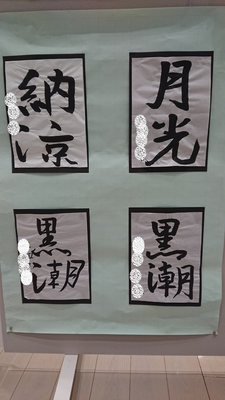 月光
納涼
黒潮
黒潮